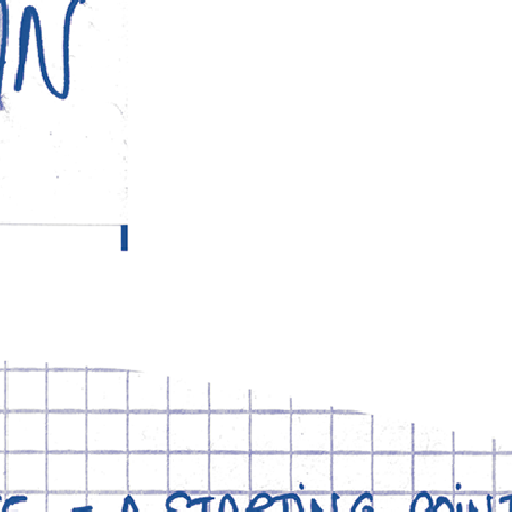 N
- A STARTING POINT